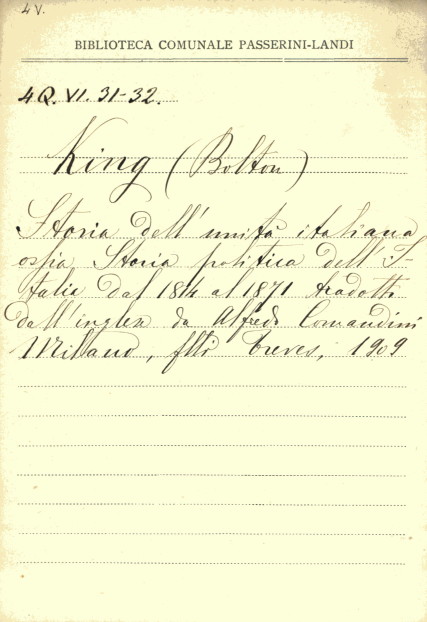 4 V.
BIBLIOTECA COMUNALE PASSERINI-LANDI
4Q. VI. 31-32.
King (Bolton)
Storia dell'unità italiana
ossia Storia politica dell'I-
talia dal 1814 al 1871 tradotta
dall'inglese da Alfredo Comandini
Milano, flli Treves, 1909